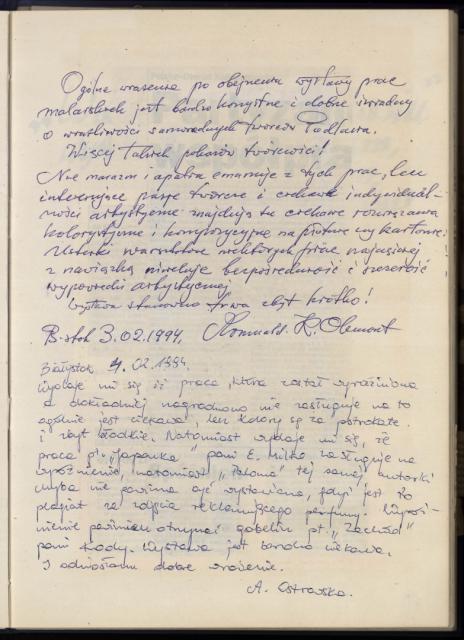 Ogólne wrażenie po obejrzeniu wystawy prac
malarskich jest bardzo korzystne i dobrze świadczy
o wrażliwości samorodnych twórców Podlasia.
Więcej takich pokazów twórczości!
Nie marazm i apatia emanuje z tych prac, lecz
interesujące pasje twórcze i ciekawe indywidual-
ności artystyczne znajdują tu ciekawe rozwiązania
kolorystyczne i kompozycyjne na płótnie czy kartonie.
Usterki warsztatowe niektórych prac najczęściej
z nawiązką niweluje bezpośredniość i szczerość
wypowiedzi artystycznej.
Wystawa stanowczo trwa zbyt krótko!
B-stok 3.02.1994. Romuald K.
Białystok 4.02.1994.
Wydaje mi się iż praca, która został wyróżniona
a dokładniej nagrodzona nie zasługuje na to
ogólnie jest ciekawa, lecz kolory są za
i zbyt słodkie. Natomiast wydaje mi się, że
praca pt. "Japonka" pani E. Milko zasługuje na
wyróżnienie, natomiast tej samej autorki
chyba nie powinna być wystawiana, gdyż jest to
plagiat ze zdjęcia reklamującego perfumy. Wyróż-
nienie powinien otrzymać gobelin pt. "Zachód"
pani Wystawa jest bardzo ciekawa.
I odniosłam dobre wrażenie.
A. Ostrowska.